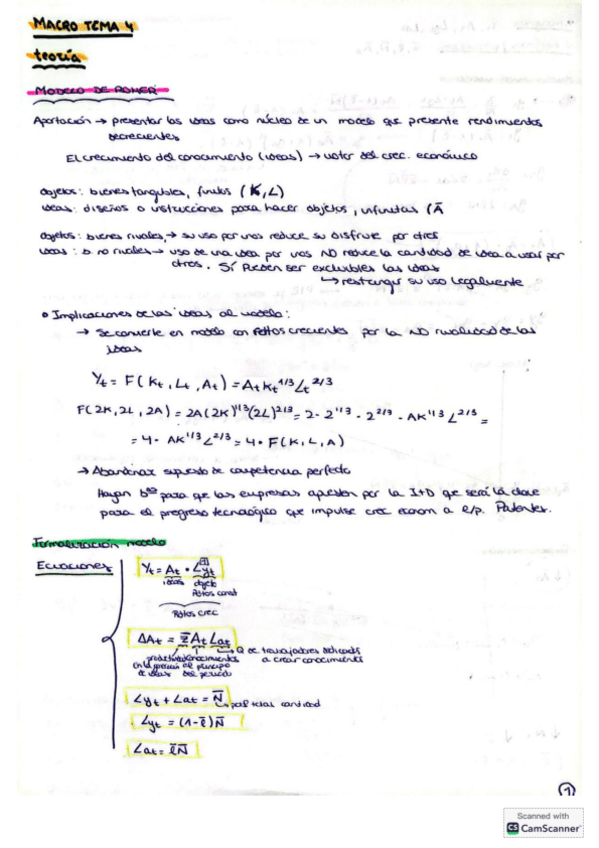 MACRO TEMA 4
teoría
MODELO DE ROMER
Aportación → presentar las ideas como núcleo de un modelo que presente rendimientos
decrecientes
El crecimiento del conocimiento (ideas) → motor del crec. económico
objetos: bienes tangibles, finitos (K, L)
ideas: diseños o instrucciones para hacer objetos, infinitas (Ā
objetos: bienes rivales, → su uso por unos reduce su disfrute por otros
ideas: b. no rivales → uso de una idea por unos NO reduce la cantidad de idea a usar por
otros. Sí pueden ser excluibles las ideas
↳ restringir su uso legalmente
• Implicaciones de las ideas al modelo:
→ Se convierte en modelo con Rdtos crecientes por la NO rivalidad de las
ideas
Yt = F(Kt, Lt, At) = At Kt^1/3 Lt^2/3
F(2K, 2L, 2A) = 2A(2K)^1/3 (2L)^2/3 = 2 · 2^1/3 · 2^2/3 · AK^1/3 L^2/3 =
= 4 · AK^1/3 L^2/3 = 4 · F(K, L, A)
→ Abandonar supuesto de competencia perfecta
Hayan bºs para que las empresas apuesten por la I+D que será la clave
para el progreso tecnológico que impulse crec econom a l/p. Patentes.
Formalización modelo
Ecuaciones
Yt = At · Lyt
ideas objeto
Rdtos const
Rdtos crec
ΔAt = z̄ At Lat → Q de trabajadores dedicando
a crear conocimientos
productividad conocimientos
en la al principio
de ideas del periodo
Lyt + Lat = N̄
↳ pobl total cantidad
Lyt = (1-ℓ̄) N̄
Lat = ℓ̄N̄
1
Scanned with
CS CamScanner